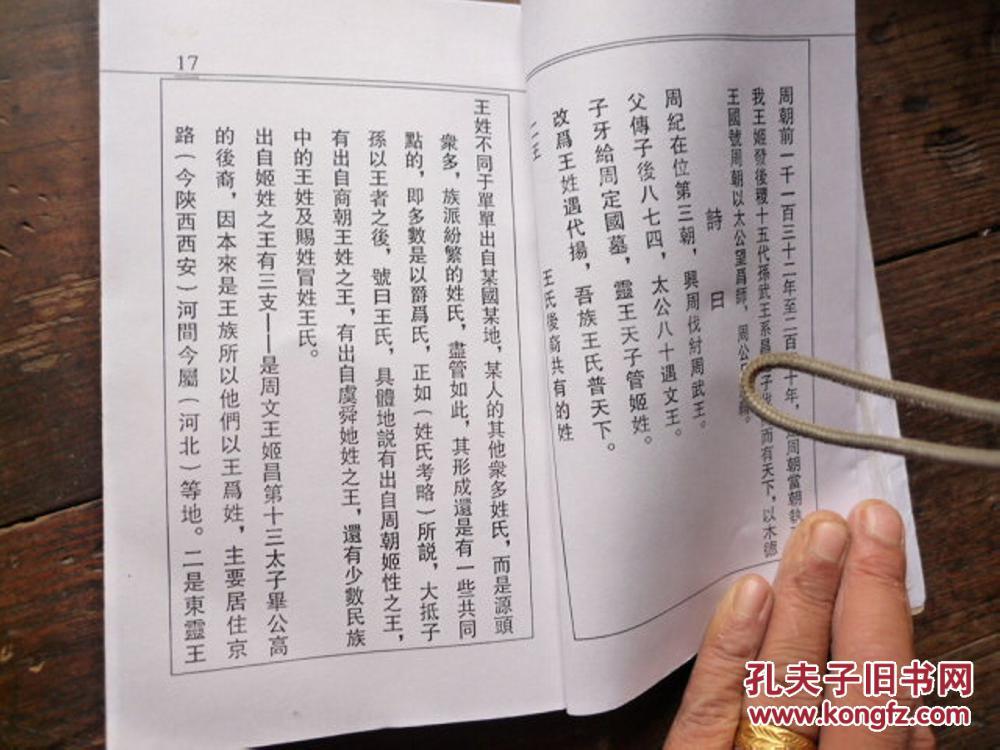 周朝前一千一百三十二年至二百 十年, 周朝當朝
我王姬發後稷十五代孫武王系昌 子 而有天下,以木德
王國號周朝以太公望爲師,周公
詩曰
周紀在位第三朝,興周伐紂周武王。
父傳子後八七四,太公八十遇文王。
子牙給周定國墓,靈王天子管姬姓。
改爲王姓遇代揚,吾族王氏普天下。
王氏後裔共有的姓
17
王姓不同于單單出自某國某地,某人的其他衆多姓氏,而是源頭
衆多,族派紛繁的姓氏,盡管如此,其形成還是有一些共同
點的,即多數是以爵爲氏,正如(姓氏考略)所説,大抵子
孫以王者之後,號曰王氏,具體地説有出自周朝姬性之王,
有出自商朝王姓之王,有出自虞舜她姓之王,還有少數民族
中的王姓及賜姓冒姓王氏。
出自姬姓之王有三支——是周文王姬昌第十三太子畢公高
的後裔,因本來是王族所以他們以王爲姓,主要居住京
路(今陝西西安)河間今屬(河北)等地。二是東靈王
孔夫子旧书网
www.kongfz.com